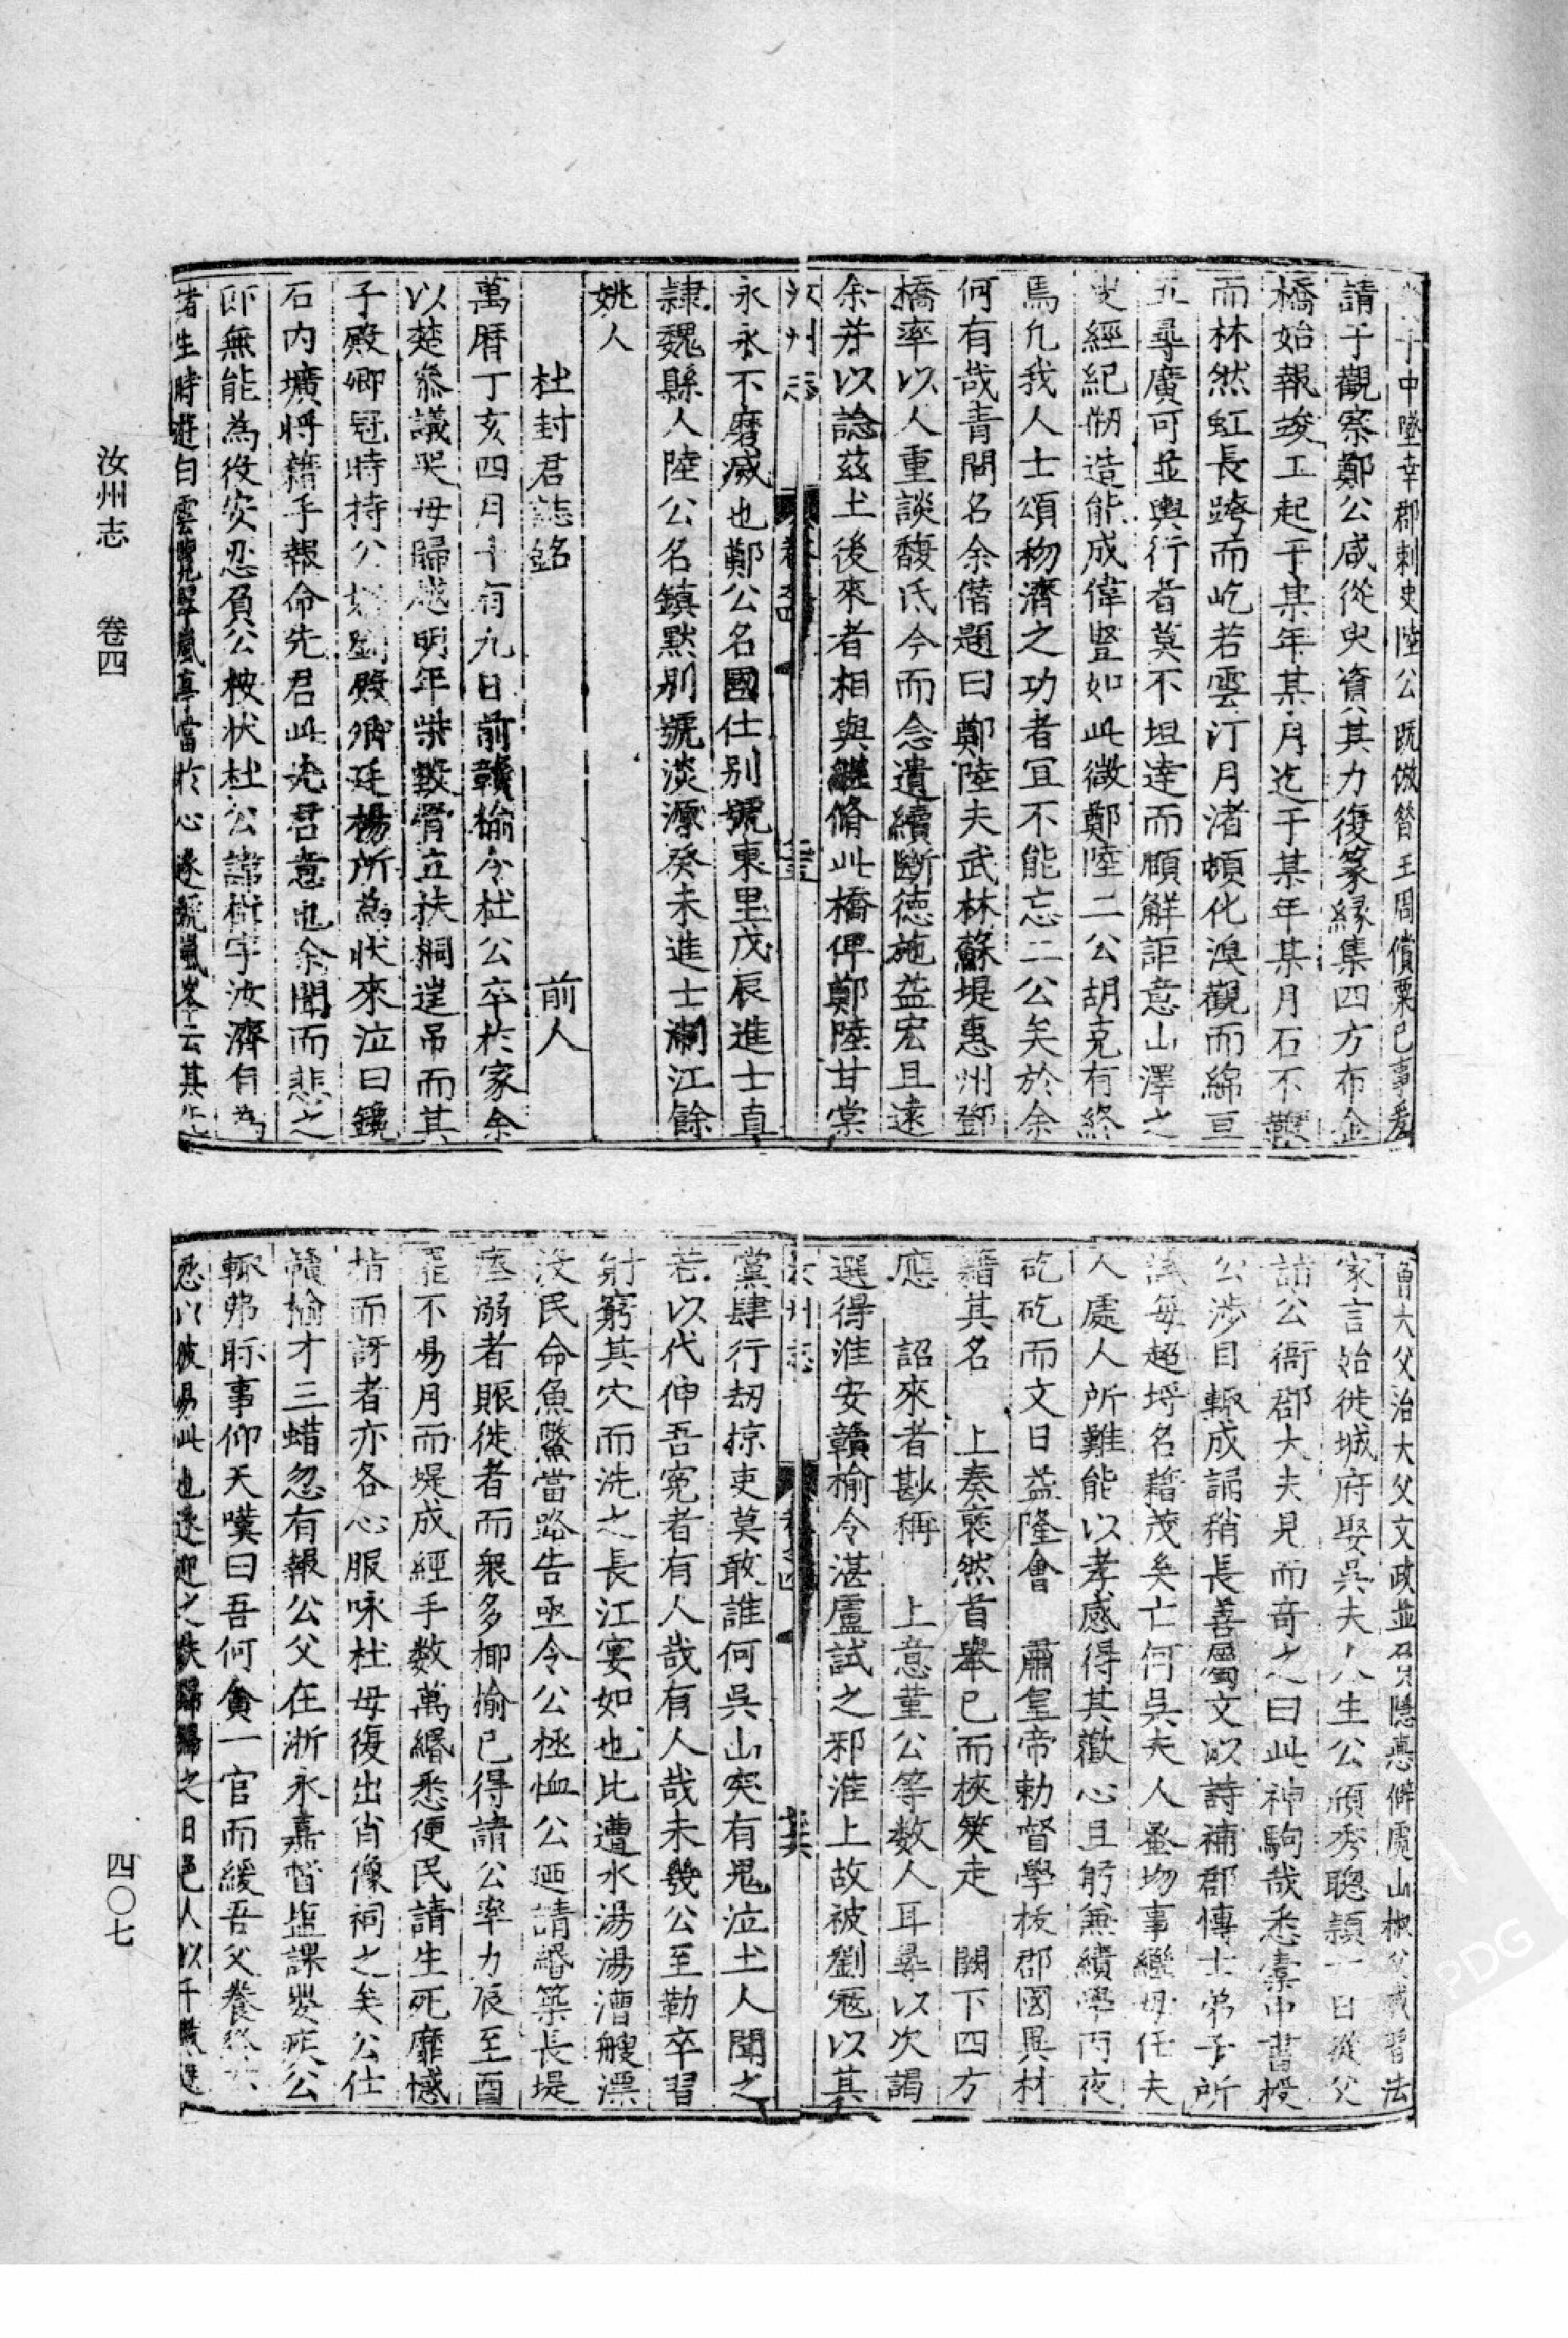 于中墜幸郡刺史陸公既倣晉王周償粟已事爰
請于觀察鄭公咸從臾資其力復篆緣集四方布金
橋始報竣工起于某年某月迄于某年某月石不鞭
而林然虹長跨而屹若雲汀月渚頓化溟觀而綿亘
五尋廣可並輿行者莫不坦達而頤解詎意山澤之
叟經紀剏造能成偉豎如此微鄭陸二公胡克有終
焉凢我人士頌物濟之功者冝不能忘二公矣於余
何有哉青問名余僭題曰鄭陸夫武林蘇堤惠州鄧
橋率以人重談馥氏今而念遺續斷德施益宏且遠
余并以諗茲土後來者相與繼脩此橋俾鄭陸甘棠
汝州志 卷之四
永永不磨滅也鄭公名國仕别號東里戊辰進士真
隷魏縣人陸公名鎮默别號淡源癸未進士淛江餘
姚人
杜封君誌銘 前人
萬曆丁亥四月十有九日前贛榆令杜公卒於家余
以楚叅議哭母歸感明年柴毀骨立扶搁逬吊而其
子殿卿冠時持公壻劉殿卿廷楊所為狀來泣曰鑱
石内壙將藉手報命先君此先君意也余聞而悲之
卽無能為役安忍負公按状杜公諱樹字汝濟有為
諸生時遊白雲覽翠嵐亭當於心遂號嵐峯云其先
曾大父治大父文政並召隱憲僻處山椒父威習法
家言始徙城府娶吳夫人生公頎秀聰頴一日從父
詣公衙郡大夫見而奇之曰此神駒哉悉橐中書授
公涉目輒成誦稍長善屬文以詩補郡博士弟子所
試每超埓名籍茂矣亡何吳夫人蚤物事繼母任夫
人處人所難能以孝感得其歡心且躬兼績學丙夜
矻矻而文日益隆會 肅皇帝勅督學校郡國異材
籍其名 上奏裦然首舉已而梜筴走 闕下四方
應 詔來者尠稱 上意董公等数人耳尋以次謁
選得淮安贛榆令湛盧試之邪淮上故被劉冦以其
汝州志 卷之四 六
黨肆行刼掠吏莫敢誰何吳山突有鬼泣土人聞之
若以代伸吾寃者有人哉有人哉未幾公至勒卒習
射窮其穴而洗之長江宴如也比遭水湯湯漕艘漂
没民命魚鱉當路告亟令公拯恤公廼請緡築長堤
瘞溺者賑徙者而衆多揶揄已得請公率力辰至酉
罷不昜月而堤成經手数萬緡悉便民請生死靡憾
指而訝者亦各心服咏杜母復出肖像祠之矣公仕
贛榆才三蜡忽有報公父在浙永嘉督塩課嬰疾公
輒弗眎事仰天嘆曰吾何貪一官而緩吾父養
悉以彼昜此也遂迎之扶歸歸之日邑人以千
汝州志 卷四
四〇七